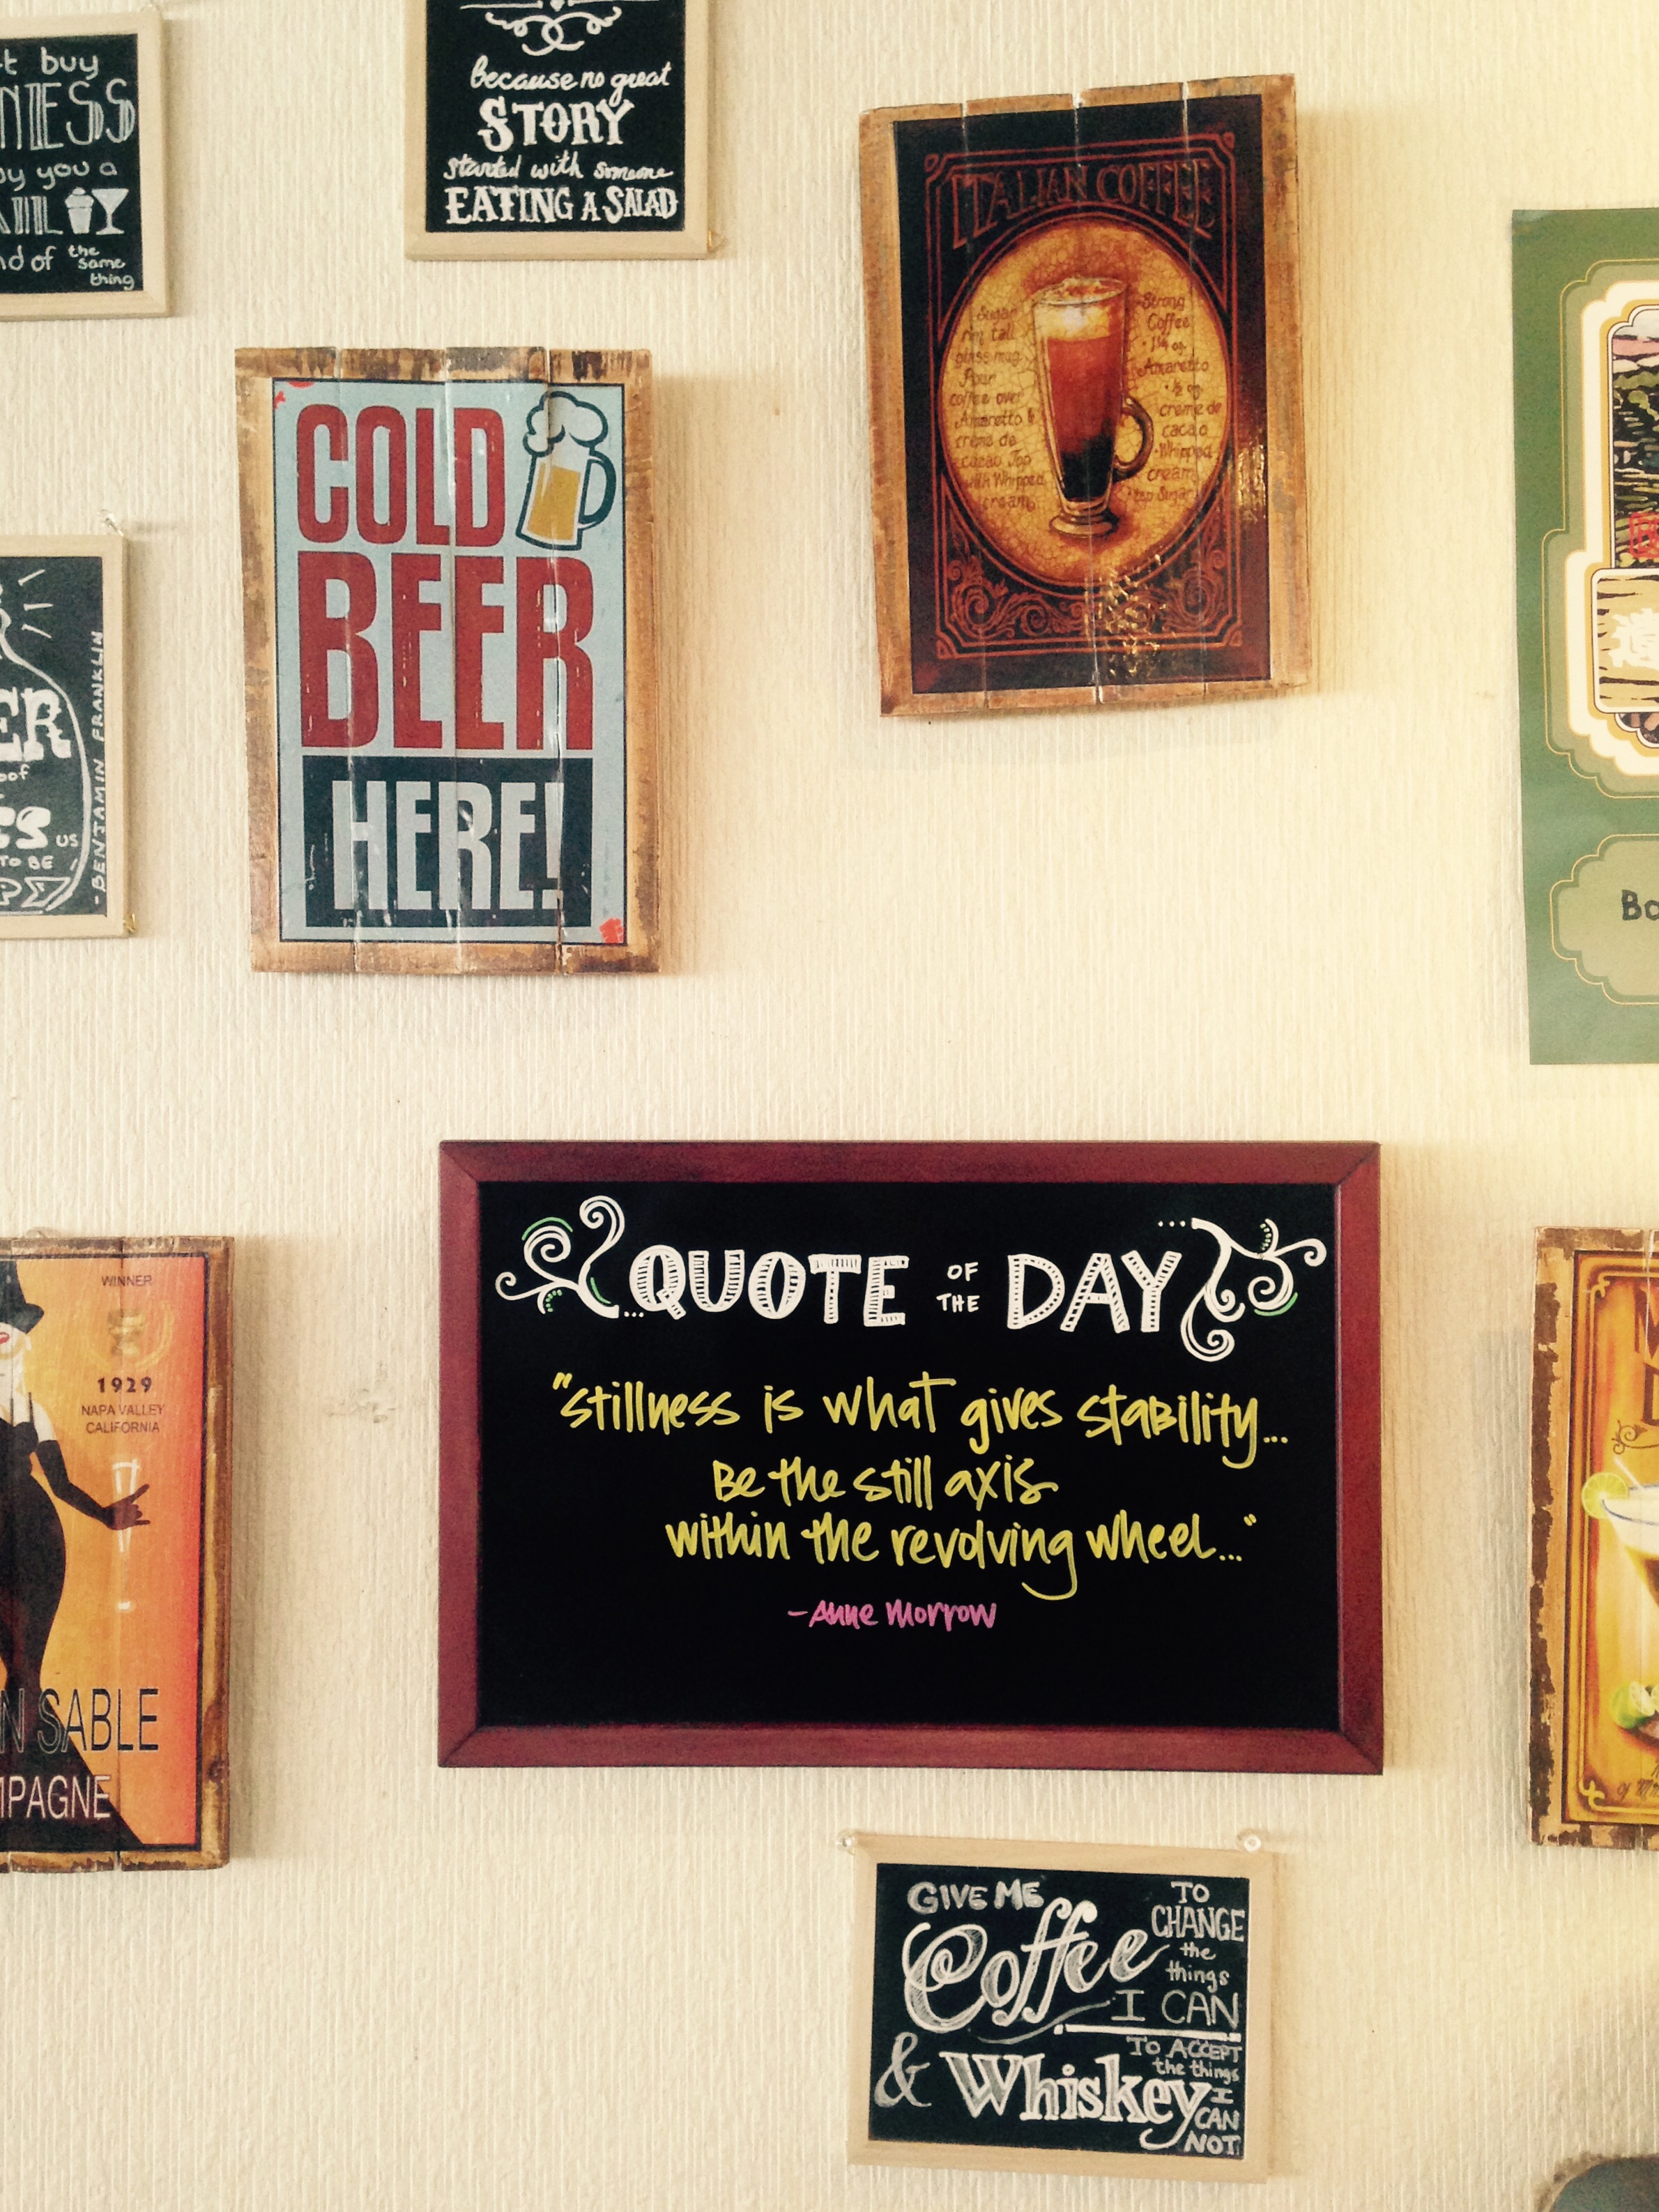 t buy
NESS
y you a
AIL
nd of the
same
thing
because no great
STORY
started with someone
EATING A SALAD
ITALIAN COFFEE
Sugar
rim tall
glass mug.
Pour
coffee over
Amaretto &
crème de
cacao. Top
with Whipped
cream.
Strong
Coffee
• 1¼ oz.
Amaretto
• ½ oz
creme de
cacao
• Whipped
cream
• tsp Sugar
COLD
BEER
HERE!
ER
oof
ES US
TO BE
PPY
- BENJAMIN FRANKLIN
Bo
QUOTE OF THE DAY
"stillness is what gives stability...
Be the still axis
within the revolving wheel..."
- Anne Morrow
WINNER
1929
NAPA VALLEY
CALIFORNIA
N SABLE
MPAGNE
GIVE ME
Coffee
TO
CHANGE
the
things
I CAN
& Whiskey
TO ACCEPT
the things
I
CAN
NOT